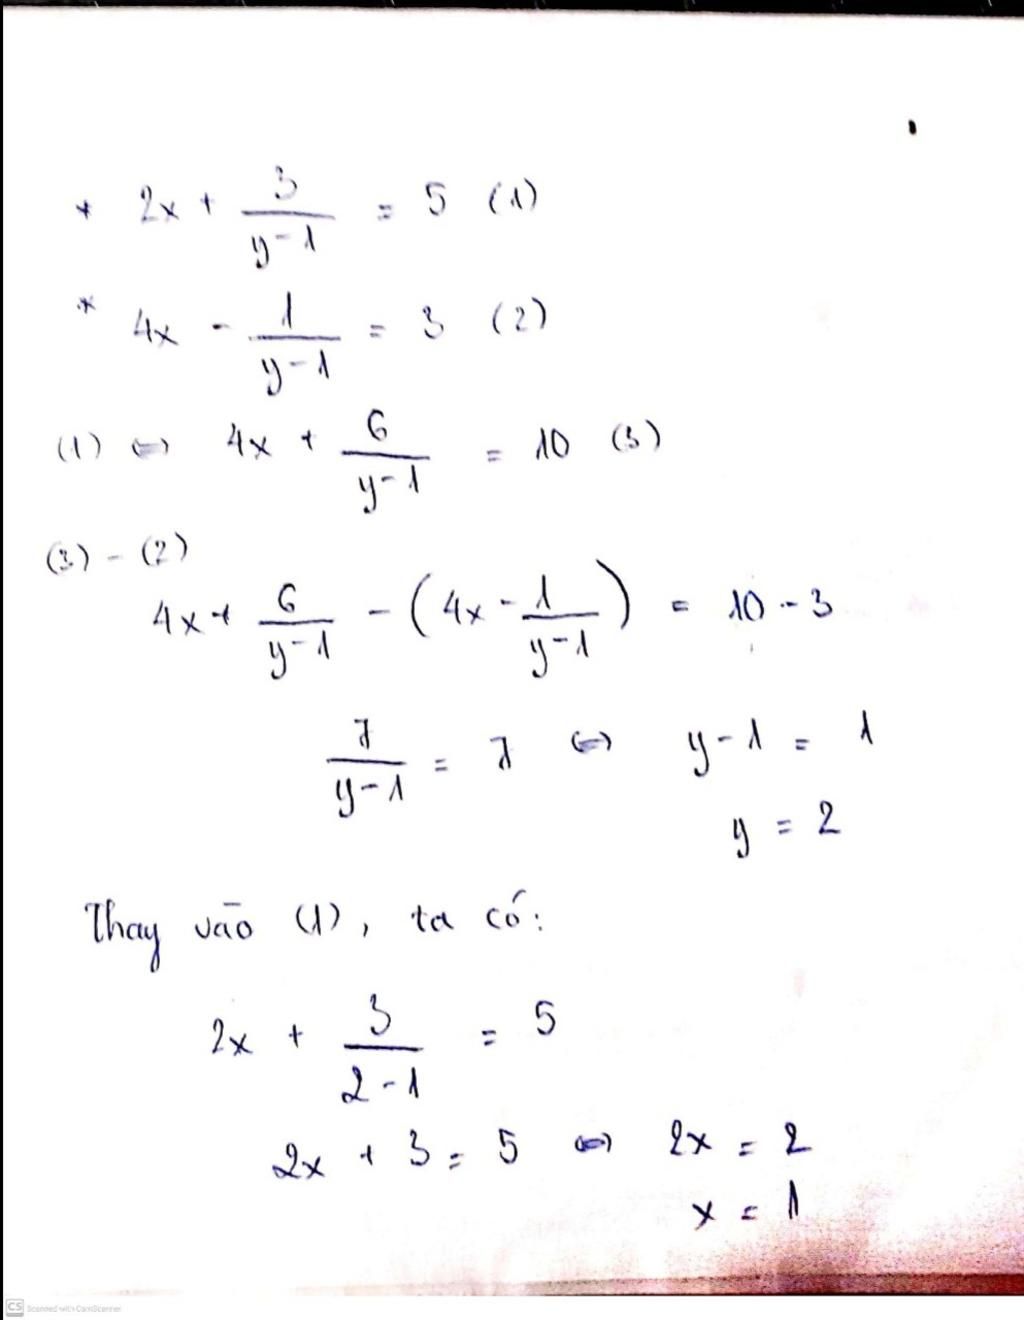 * 2x + 3/(y-1) = 5 (1)
* 4x - 1/(y-1) = 3 (2)
(1) ⇔ 4x + 6/(y-1) = 10 (3)
(3) - (2)
4x + 6/(y-1) - (4x - 1/(y-1)) = 10 - 3
7/(y-1) = 7 ⇔ y-1 = 1
y = 2
Thay vào (1), ta có:
2x + 3/(2-1) = 5
2x + 3 = 5 ⇔ 2x = 2
x = 1
CS Scanned with CamScanner